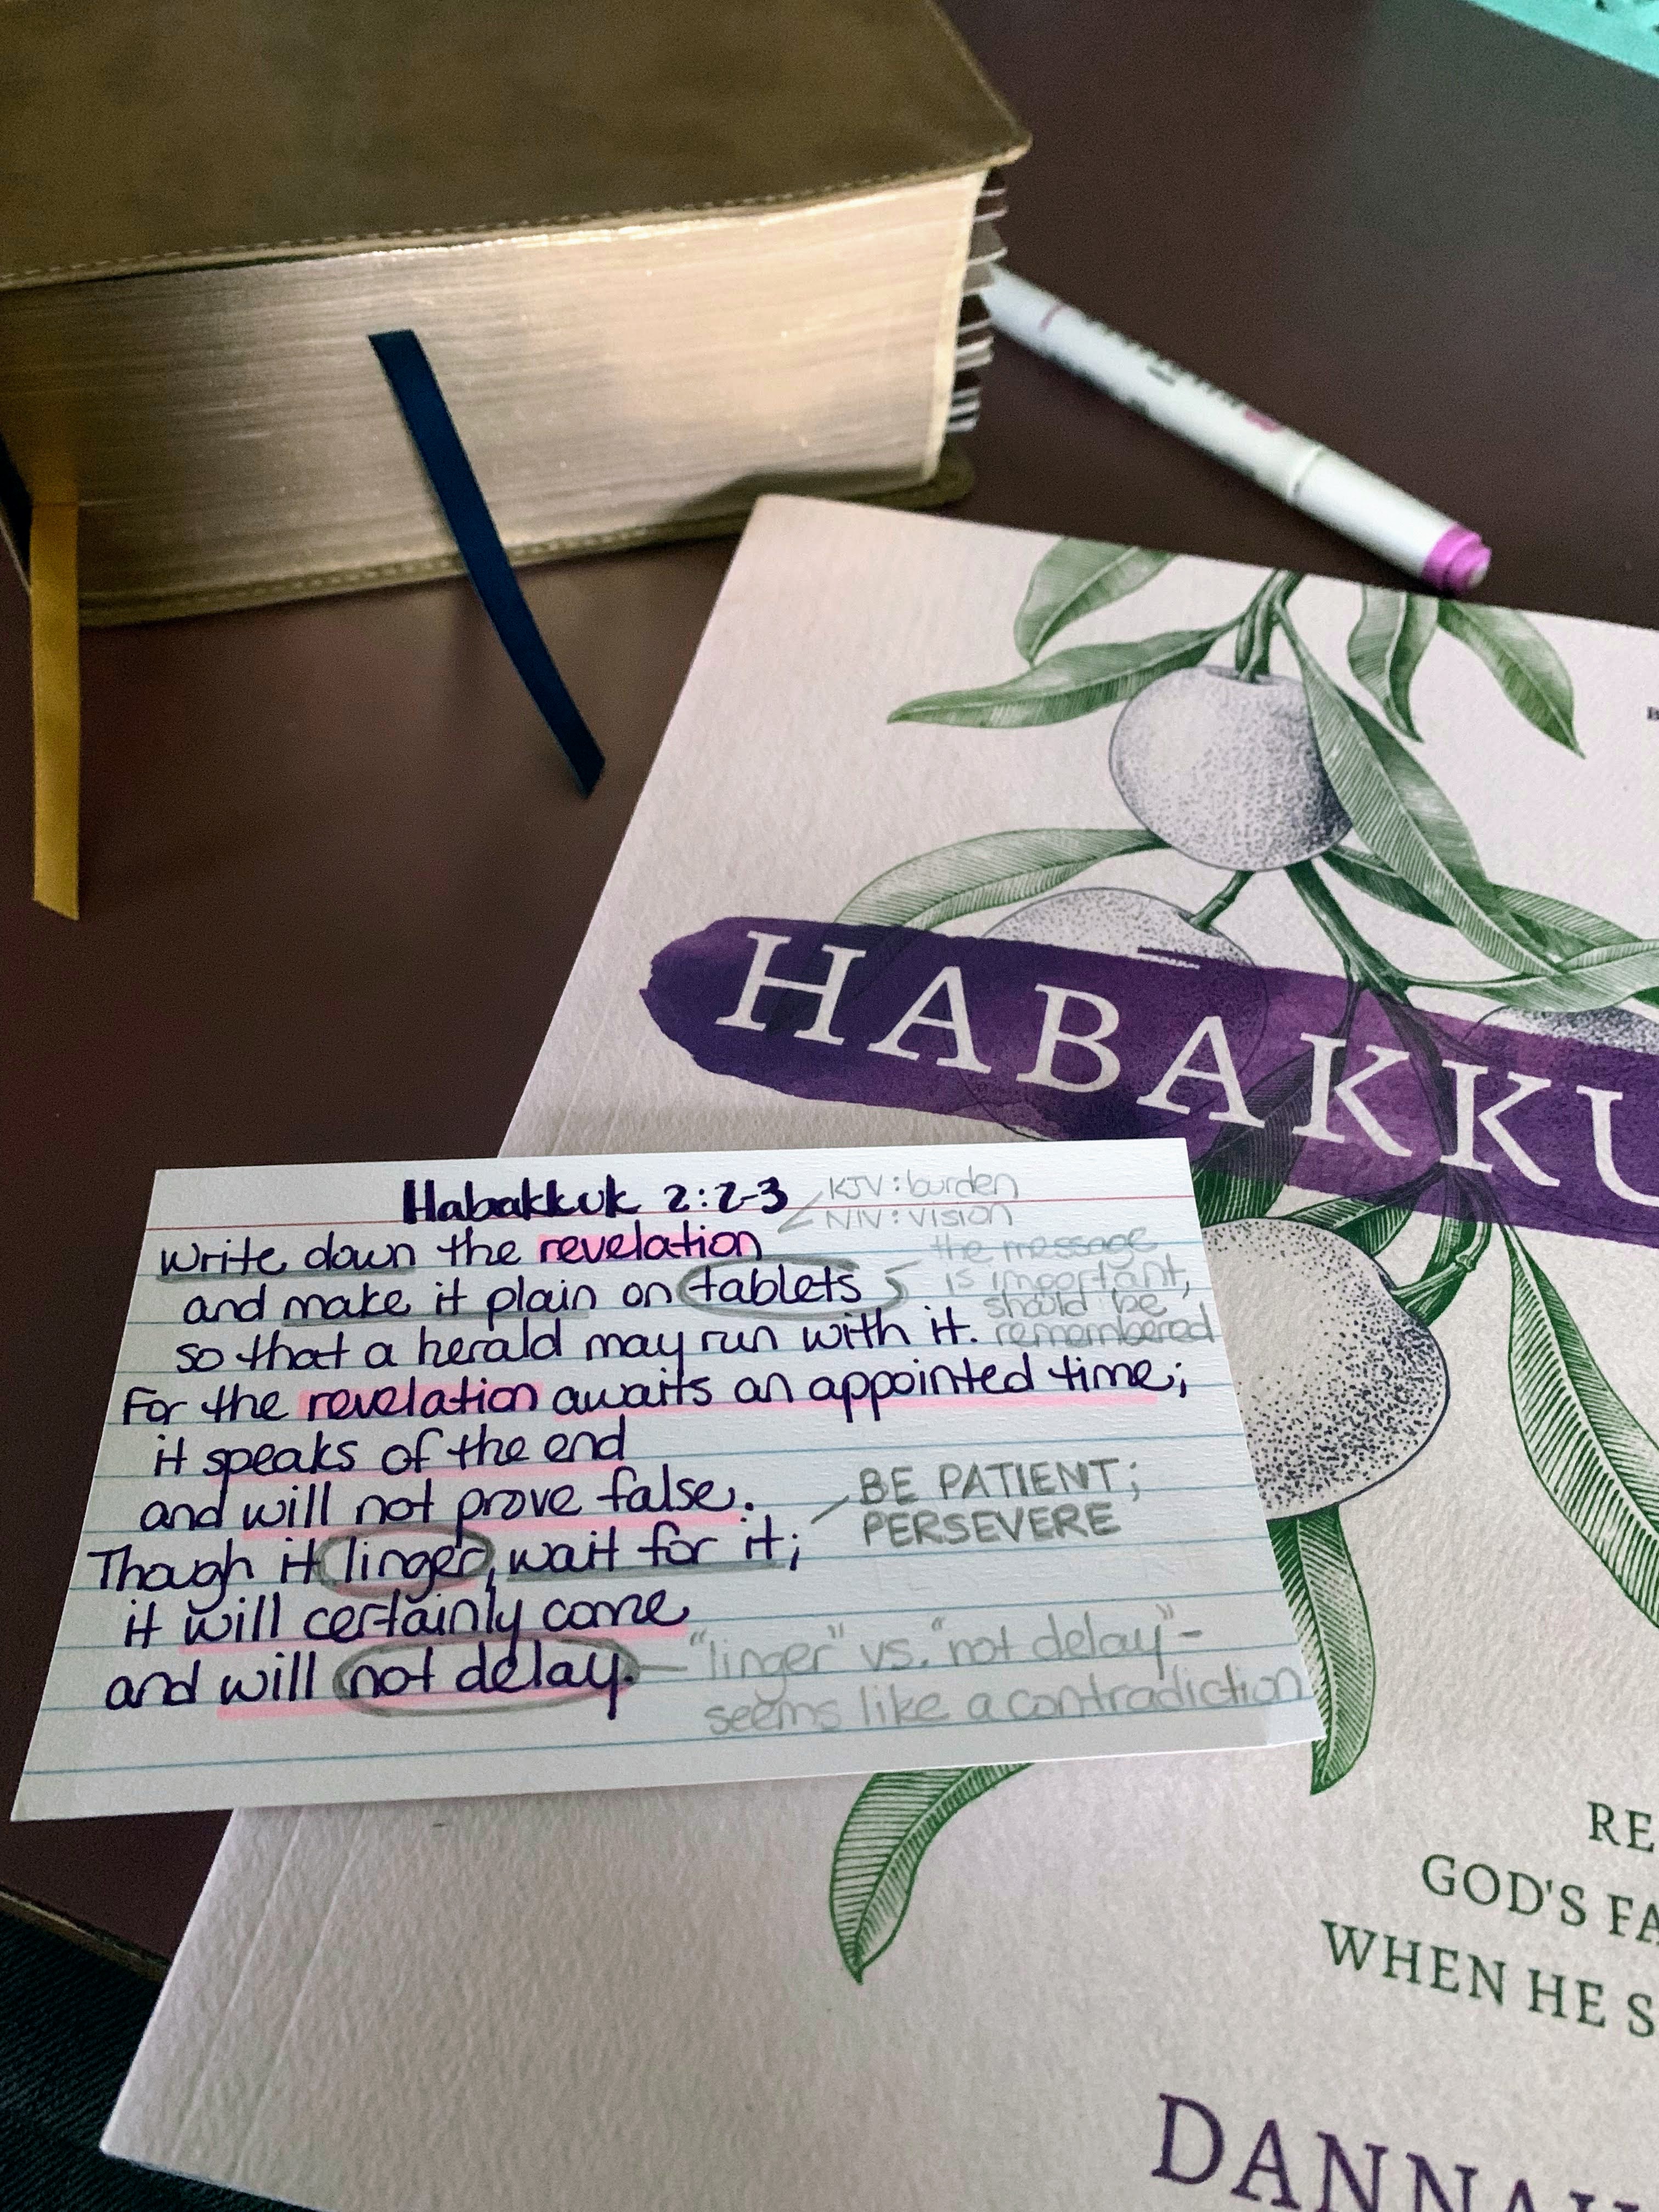 HABAKKU
Habakkuk 2:2-3
KJV: burden
NIV: vision
Write down the revelation
and make it plain on tablets
so that a herald may run with it.
the message
is important,
should be
remembered
For the revelation awaits an appointed time;
it speaks of the end
and will not prove false.
BE PATIENT;
PERSEVERE
Though it linger, wait for it;
it will certainly come
and will not delay.
"linger" vs. "not delay" -
seems like a contradiction
RE
GOD'S FA
WHEN HE S
DANNA